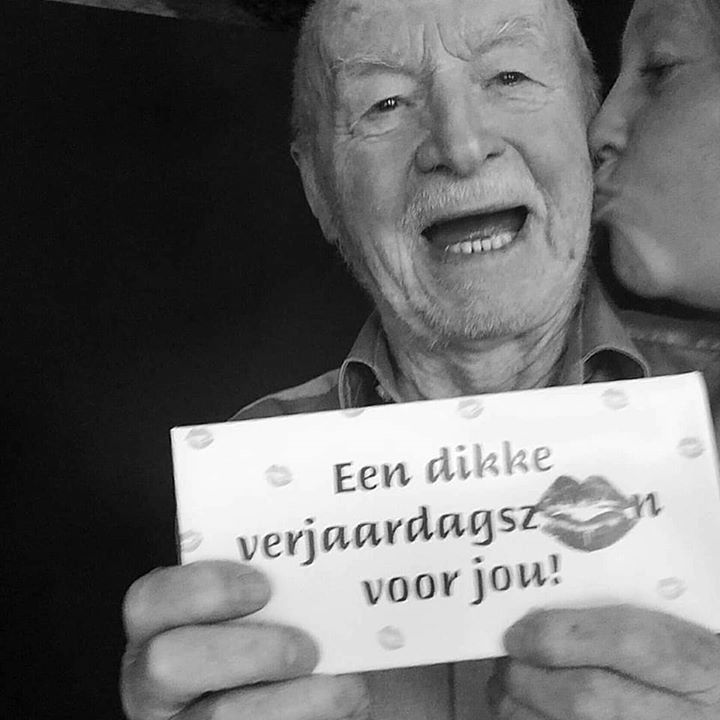 Een dikke
verjaardagsz n
voor jou!